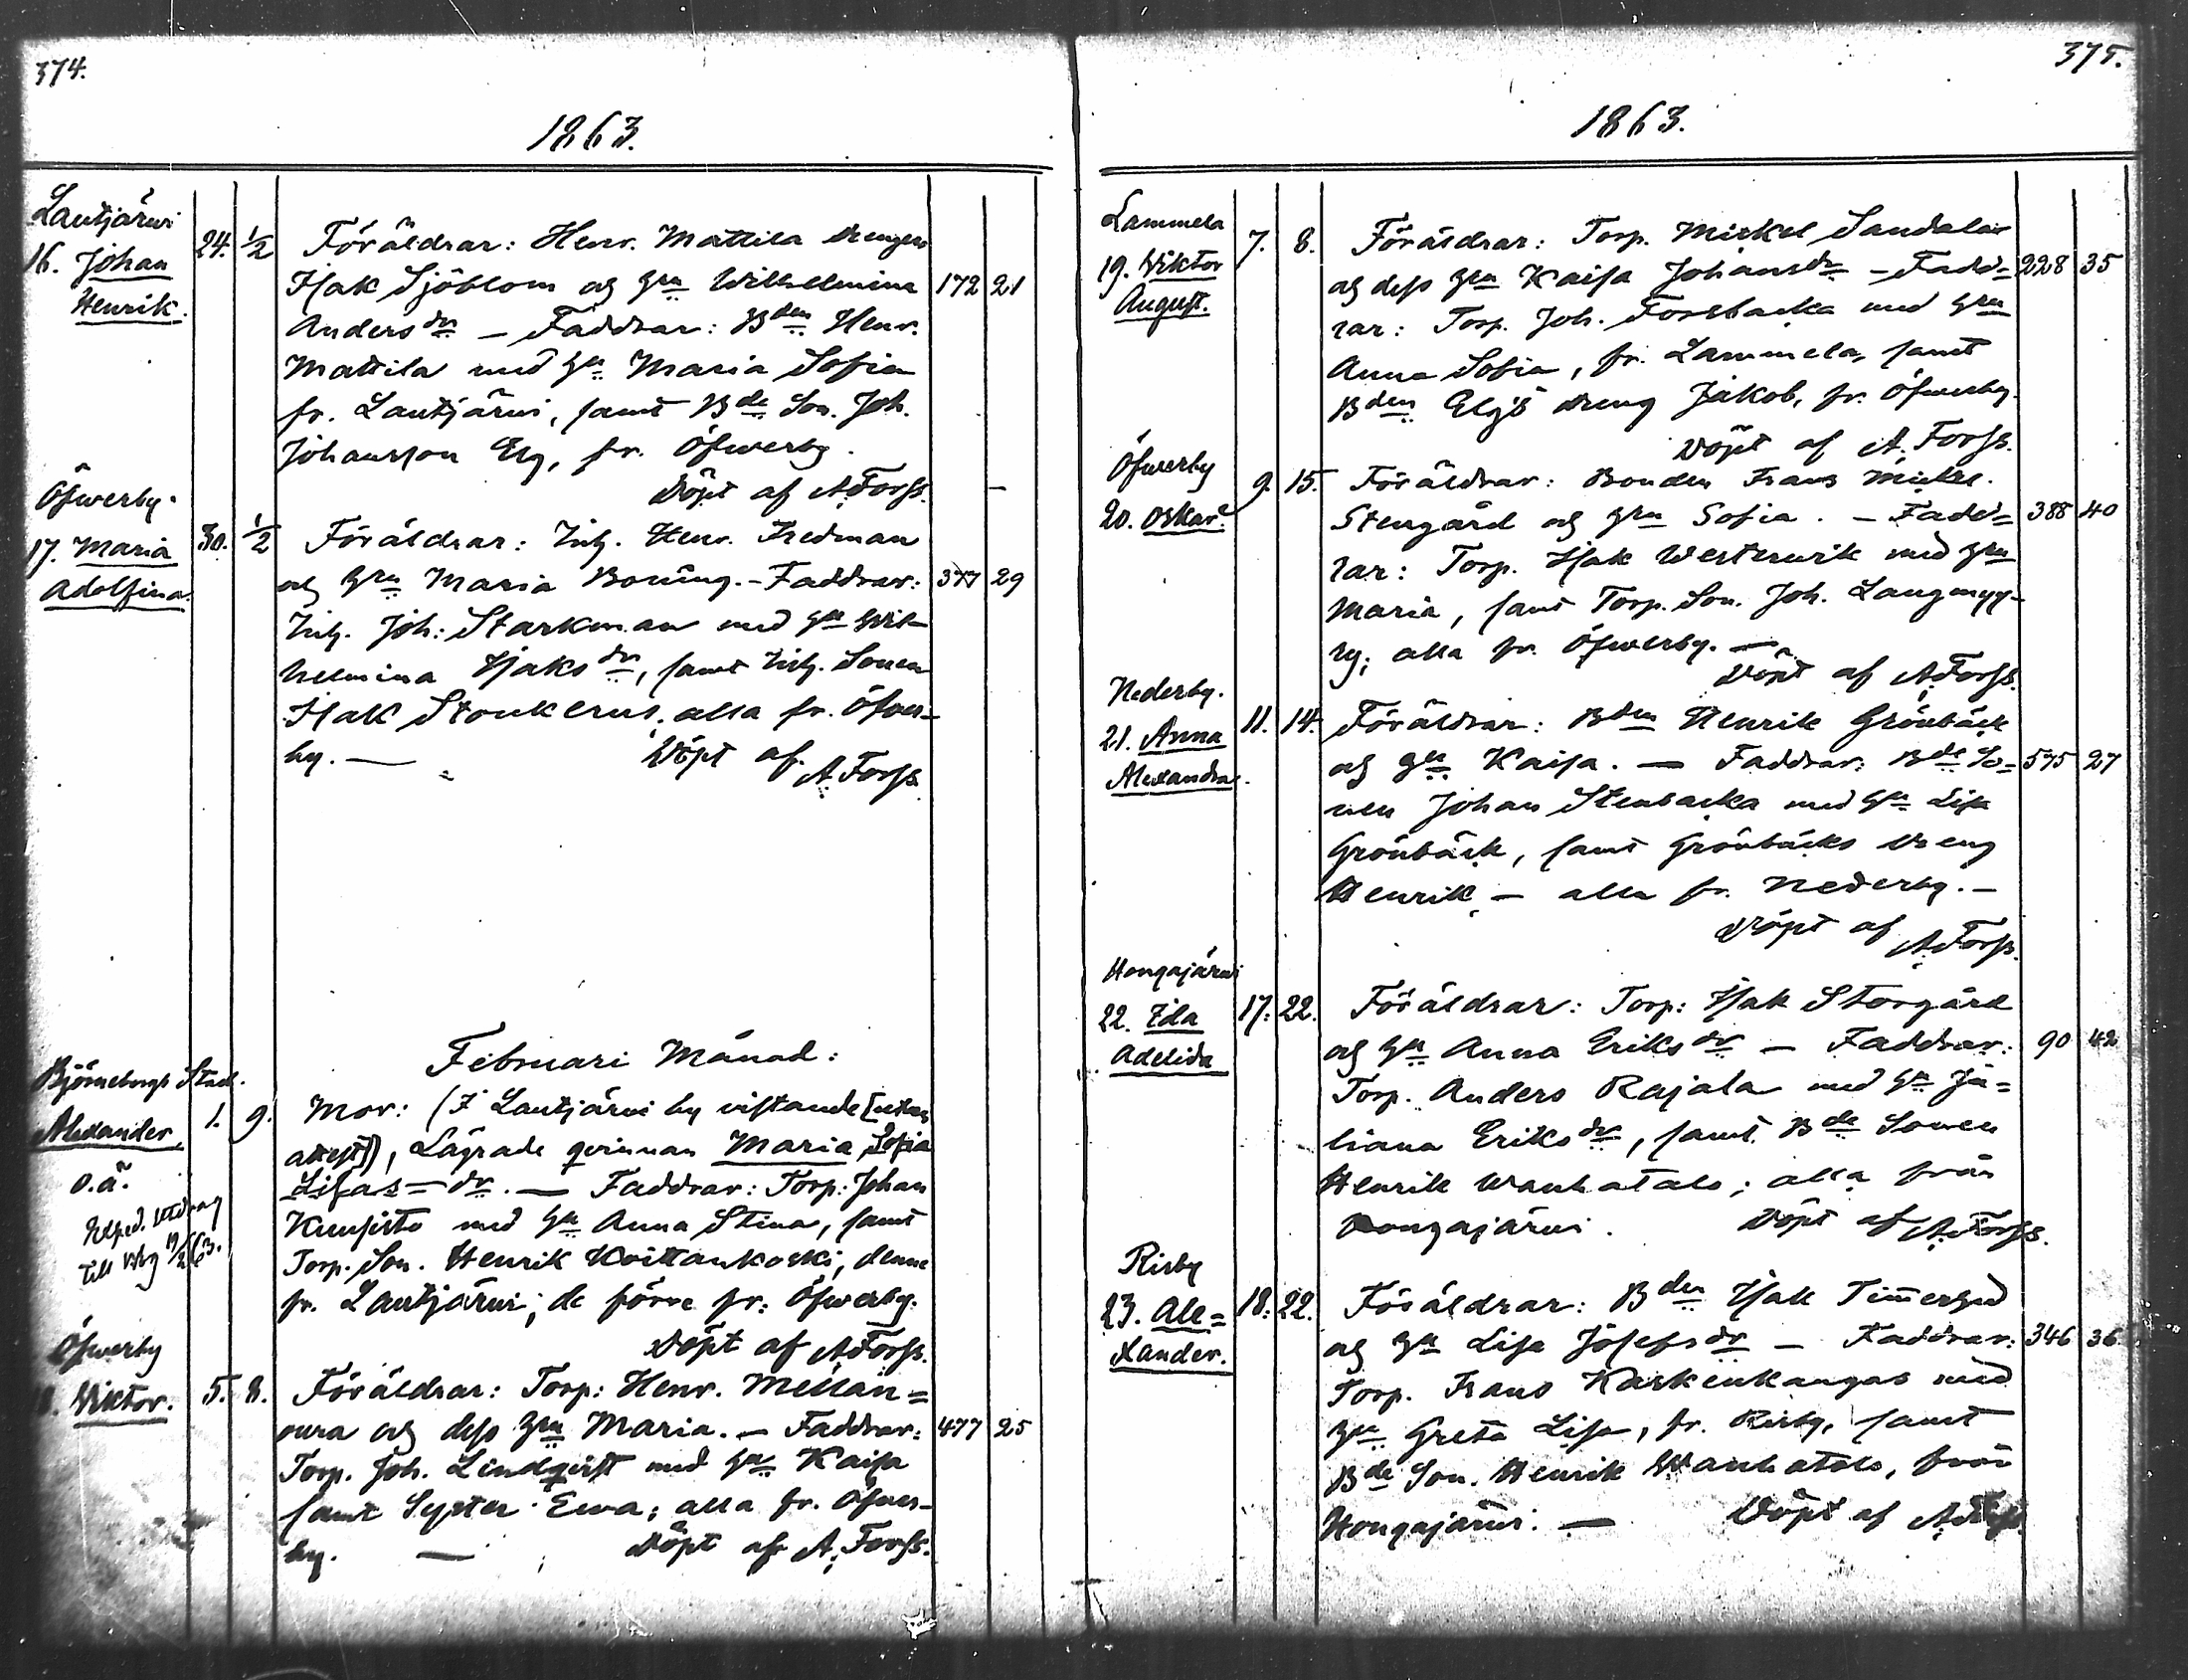 374.
1863.
Lautjärwi
16. Johan
Henrik.
24. 1/2
Föräldrar: Henr. Mattila drengen
Isak Sjöblom og Hru Wilhelmina
Anders dr. — Faddrar: Bden Henr.
Mattila med Hu Maria Sofia
fr. Lautjärwi, samt Bde Son. Joh.
Johansson Elg, fr. Öfwerby.
Döpt af A. Forss.
172 21
Öfwerby.
17. Maria
Adolfina.
30. 1/2
Föräldrar: Inh. Henr. Fredman
og Hru Maria Boning. — Faddrar:
Inh. Joh: Starkman med Hu Wil-
helmina Isaks dr, samt Inh. Sonen
Isak Stonkerus, alla fr. Öfwer-
by. — Döpt af
A. Forss.
377 29
Februari Månad:
Björneborgs Stad.
Alexander
o.ä.
Exped. Utdrag
till Bbg 19/2 63.
1. 9.
Mor: (I Lautjärwi by vistande [utan
attest]), Lägrade qvinnan Maria Sofia
Lisas - dr. — Faddrar: Torp: Johan
Kuusisto med Hu Anna Stina, samt
Torp. Son. Henrik Koittankoski, denne
fr. Lautjärwi; de förre fr: Öfwerby.
Döpt af A. Forss.
Öfwerby
18. Wiktor.
5. 8.
Föräldrar: Torp: Henr. Mellan=
oura og dess Hru Maria. — Faddrar:
Torp. Joh. Lindqvist med Hu Kaisa
samt Syster Ewa; alla fr. Öfwer-
by. — Döpt af A. Forss.
477 25
375.
1863.
Lammela
19. Wiktor
August.
7. 8.
Föräldrar: Torp. Mickel Sandelin
og dess Hru Kaisa Johans dr — Fadd=
rar: Torp. Joh. Forsbacka med Hru
Anna Sofia, fr. Lammela, samt
Bden Elgs dreng Jakob, fr. Öfwerby.
Döpt af A. Forss.
228 35
Öfwerby
20. Oskar.
9. 15.
Föräldrar: Bonden Frans Mickel.
Stengård og Hru Sofia. — Fadd=
rar: Torp. Isak Westerwik med Hru
Maria, samt Torp. Son. Joh. Langmyy-
ry; alla fr. Öfwerby. —
Döpt af A. Forss.
388 40
Nederby.
21. Anna
Alexandra.
11. 14.
Föräldrar: Bden Henrik Grönbäck
og Hu Kaisa. — Faddrar: Bde So=
nen Johan Stenbacka med Hu Lisa
Grönbäck, samt Grönbäcks dreng
Henrik, — alla fr. Nederby. —
Döpt af
A. Forss.
575 27
Hongajärwi
22. Ida
Adelida
17. 22.
Föräldrar: Torp: Isak Storgård
og Hu Anna Eriks dr — Faddrar:
Torp. Anders Rajala med Hu Ju=
liana Eriks dr, samt Bde Sonen
Henrik Wanhatalo; alla från
Hongajärwi. Döpt af A. Forss.
90 42
Risby
23. Ale=
xander.
18. 22.
Föräldrar: Bden Isak Timmergård
og Hu Lisa Josefs dr — Faddrar:
Torp. Frans Kaskenkangas med
Hu Greta Lisa, fr. Risby, samt
Bde Son. Henrik Wanhatalo, från
Hongajärwi. — Döpt af A. Forss
346 36